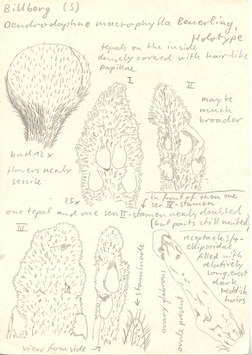 Billberg (S)
Dendrodaphne macrophylla Beurling,
Holotype
tepals on the inside
densely covered with hair-like
papillae
I
II
may be
much
broader
bud 12x
flowers nearly
sessile
25x
in front of them one
sen. III-stamen
one tepal and one sen II-stamen nearly doubled
(but parts still united)
III
staminode
receptacle
ellipsoidal,
filled with
relatively
long, erect
dark
reddish
hairs
view from side